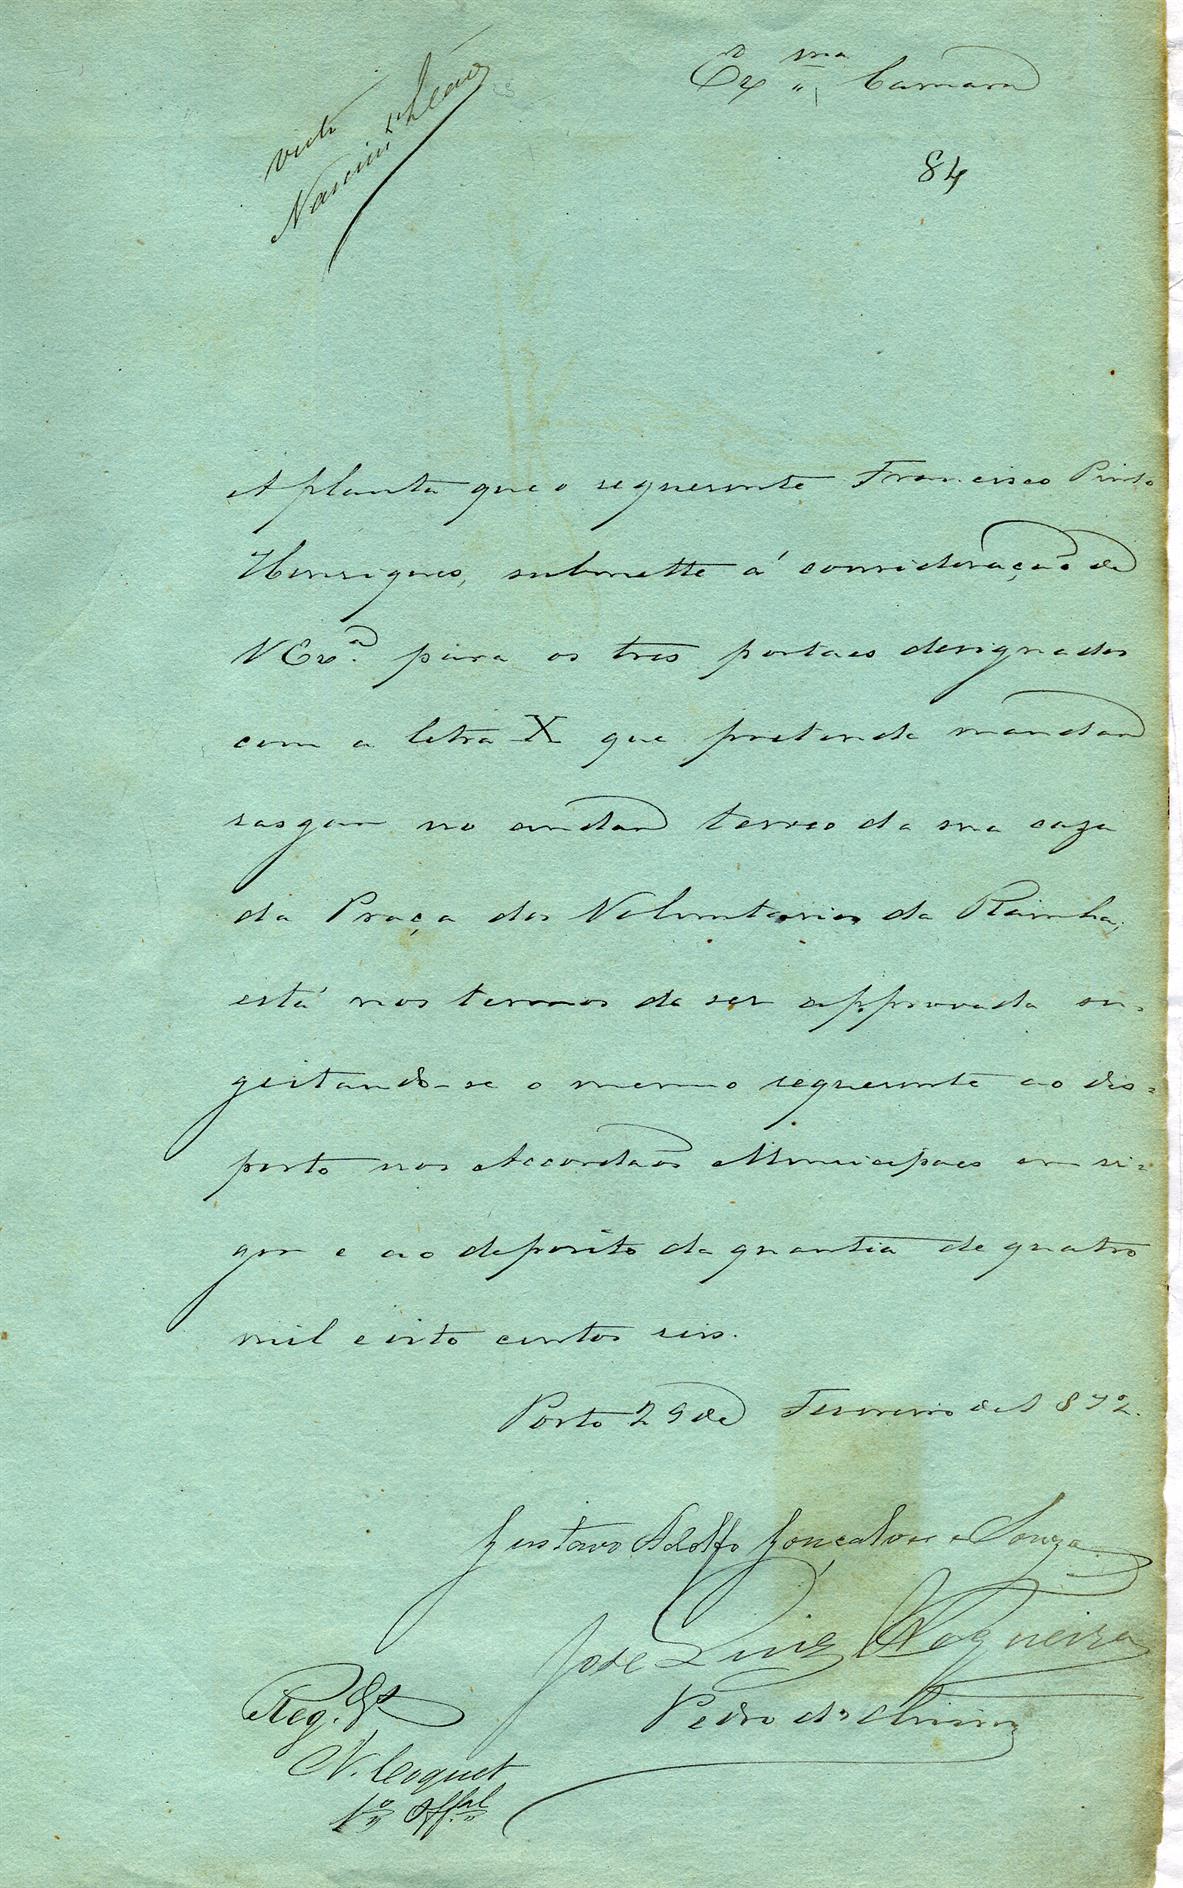 Exma Camara
84
Visto
Nascim.to Leão
A planta que o requerente Francisco Pinto
Henriques, submette á consideração de
V Exa. para os tres portaes designados
com a letra X que pretende mandar
rasgar no andar terreo da sua caza
da Praça dos Voluntarios da Rainha,
está nos termos de ser approvada su-
geitando-se o mesmo requerente ao dis-
posto nos Accordãos Municipaes em vi-
gor e ao deposito da quantia de quatro
mil e oito centos reis.
Porto 29 de Fevereiro de 1872.
Gustavo Adolfo Gonçalves e Souza
José Luiz Nogueira
Pedro d'Oliveira
Reg.
N. Coquet
1o Offal